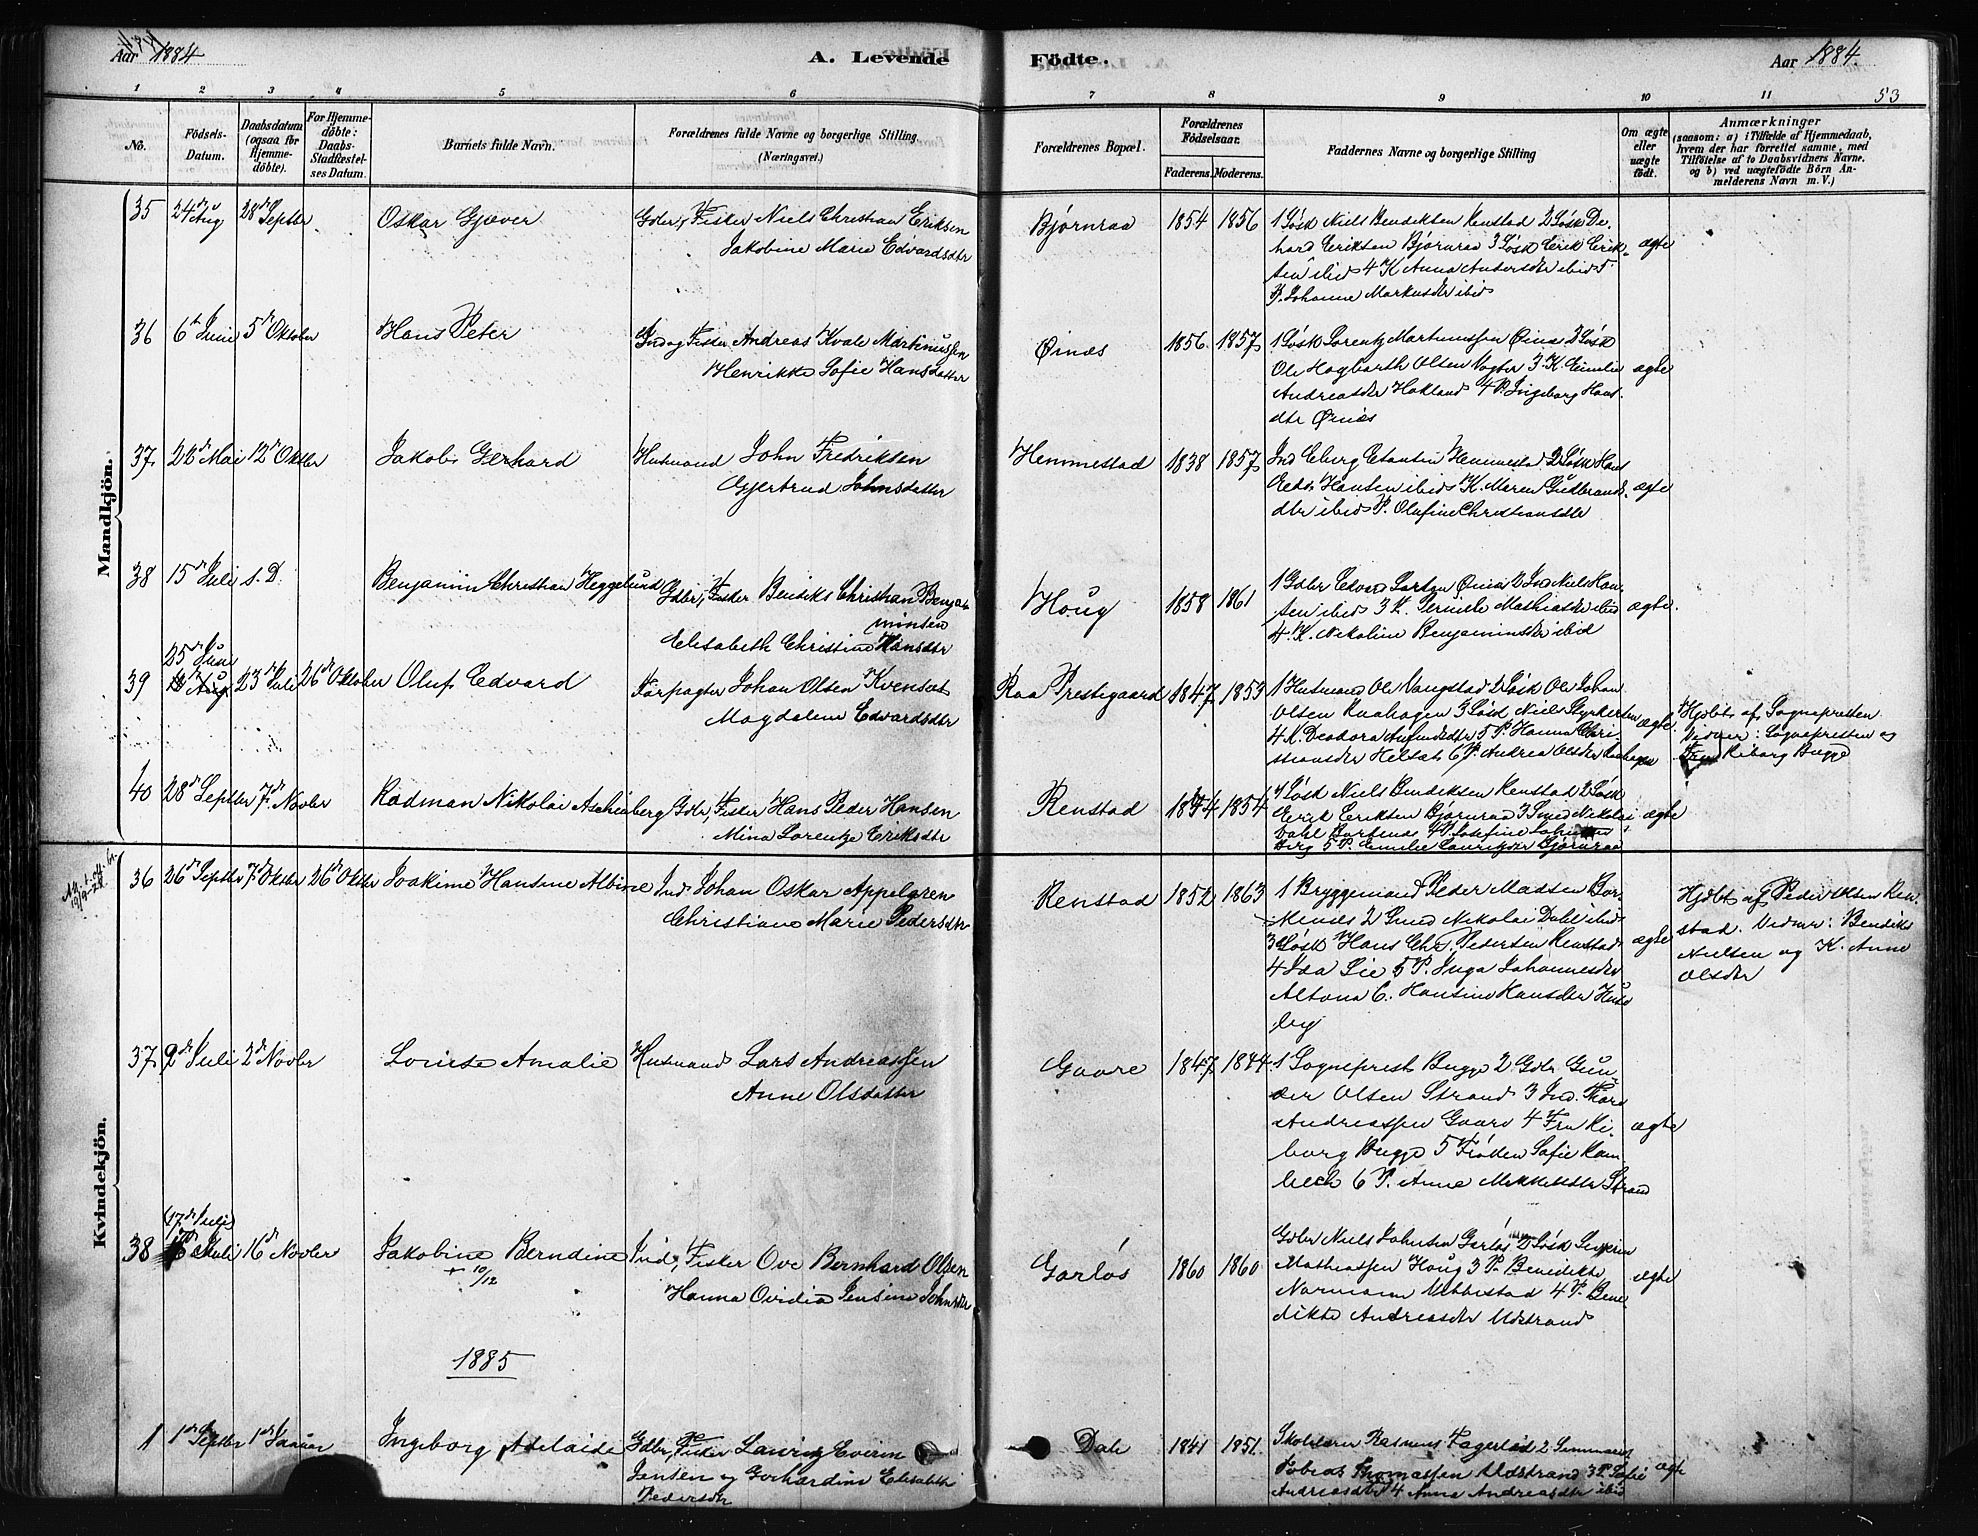 Aar 1884
A. Levende
Födte.
Aar 1884.
53
1 2 3 4 5 6 7 8 9 10 11
No.
Födsels-Datum.
Daabsdatum (ogsaa for Hjemmedöbte).
For Hjemmedöbte: Daabs-Stadfæstelses Datum.
Barnets fulde Navn.
Forældrenes fulde Navne og borgerlige Stilling. (Næringsvei.)
Forældrenes Bopæl.
Forældrenes Födselsaar.
Faderens. Moderens.
Faddernes Navne og borgerlige Stilling
Om ægte eller uægte födt.
Anmærkninger
(saasom: a) i Tilfælde af Hjemmedaab, hvem der har forrettet samme, med Tilföielse af to Daabsvidners Navne. og b) ved uægtefödte Börn Anmelderens Navn m. V.)
Mandkjön.
35 24de Aug 28de Septbr Oskar Gjæver Gdbr, Fisker Niels Christian Eriksen
Jakobine Marie Edvardsdtr
Bjørnraa 1854 1856 1 Løsk Niels Bendiksen Renstad 2 Løsk
Eriksen Bjørnraa 3 Løsk Erik Erik-
sen ibid 4 K Anna Andersdtr ibid 5
P. Johanne Markusdtr ibid
ægte
36 6te Juni 5te Oktober Hans Peter Ind og Fisker Andreas Kvale Martinussen
Henrikke Sofie Hansdatter
Øinæs 1856. 1857 1 Løsk Lorentz Martinussen Øinæs 2 Løsk
Ole Hagbarth Olsen Vogter 3. K. Emilie
Andreasdtr Hokland 4 P. Ingeborg Hans
dtr Øinæs
ægte
37. 28de Mai 12te Oktbr Jakob Gerhard Husmand John Fredriksen
Gjertrud Johnsdatter
Hemmestad 1838 1857 Ind Hemmestad 2 Løsk Hans
Hansen ibid K. Maren Gudbrands
dtr ibid P. Olufine Christiansdtr
ægte
38 15de Juli s. D. Benjamin Christian Heggelund Gdbr, Fisker Bendiks Christian Benja-
minsen
Elisabeth Christine Hansdtr
Houg 1858 1861 1 Gdbr Edvard Larsen Øinæs 2 Ind Niels Han
sen ibid 3 P. Pernille Mathiasdtr ibid
4. K. Nikoline Benjaminsdtr ibid
ægte
25de Juni
39 Aug. 23de Juli 26de Oktober Oluf Edvard Forpagter Johan Olsen Kvensæt
Magdalena Edvardsdtr
Raa Præstegaard 1847. 1853 1 Husmand Ole Vangstad 2 Løsk Ole Johan
Olsen Raahagen 3 Løsk Niels Styrkersen
4 K. Deodora 5 P. Hanna Chri-
stiansdtr 6 P. Andrea Olsdtr Raahagen
ægte. Hjdbt af Sognepresten
Vidner: Sognepresten og
Fru Riborg Bugge
40 28de Septbr 7de Novbr Radman Nikolai Aschenberg Gdbr, Fisker Hans Peder Hansen
Mina Lorentze Eriksdtr
Renstad 1854 1 Løsk Niels Bendiksen Renstad 2 Løsk
Erik Eriksen Bjørnraa 3 Smed Nikolai
Dahl Borkenæs 4 P. Josefine
5 P. Emilie Lauritzdtr Bjørnraa
ægte
Kvindekjön.
36 26de Septbr 7de Oktbr 26de Oktbr Joakime Hansine Albine Ind Johan Oskar Appelgren
Christiane Marie Pedersdtr
Renstad 1852 1863 1 Bryggemand Peder Madsen Bor-
kenæs 2 Smed Nikolai Dahl ibid
3 Løsk Hans Chr. Pedersen Renstad
4 Ida Lie 5 P. Inga Johannesdtr
Altona 6. Hansine Hansdtr Huse
by
ægte Hjdbt af Peder Olsen Ren-
stad. Vidner: Bendiks
Nielsen og K. Anne
Olsdtr
37. 9de Juli 2de Novbr Louise Amalie Husmand Lars Andreassen
Anne Olsdatter
Gaare 1847. 1844 1 Sogneprest Bugge 2 Gdbr Gun-
der Olsen Strand 3 Ind. Thore
Andreassen Gaare 4 Fru Ri-
borg Bugge 5 Frøken Sofie Ram-
bech 6 P. Anne Strand
ægte
(17de Juli)
38 Juli 16de Novbr Jakobine Berndine Ind, Fisker Ove Bernhard Olsen
+ 10/12
Hanna Ovidia Jensine Johnsdtr
Garlos 1860 1860 Gdbr Niels Johnsen Garlos 2 Løsk Severin
Mathiassen Houg 3 P. Benedikte
Normann Vebbestad 4 P. Bene
dikte Andreasdtr Udstrand
ægte
1885
1 1de Septbr 1de Januar Ingeborg Adelaide Gdbr, Fisker Lauritz Everin
Jensen og Gerhardine Elisabeth
Pedersdtr
Dale 1841 1851. Skolelærer Rasmus Fagerlid 2 Seminarist
Tobias Thomassen Udstrand 3 P. Sofie
Andreasdtr 4 Anna Andreasdtr ibid
ægte